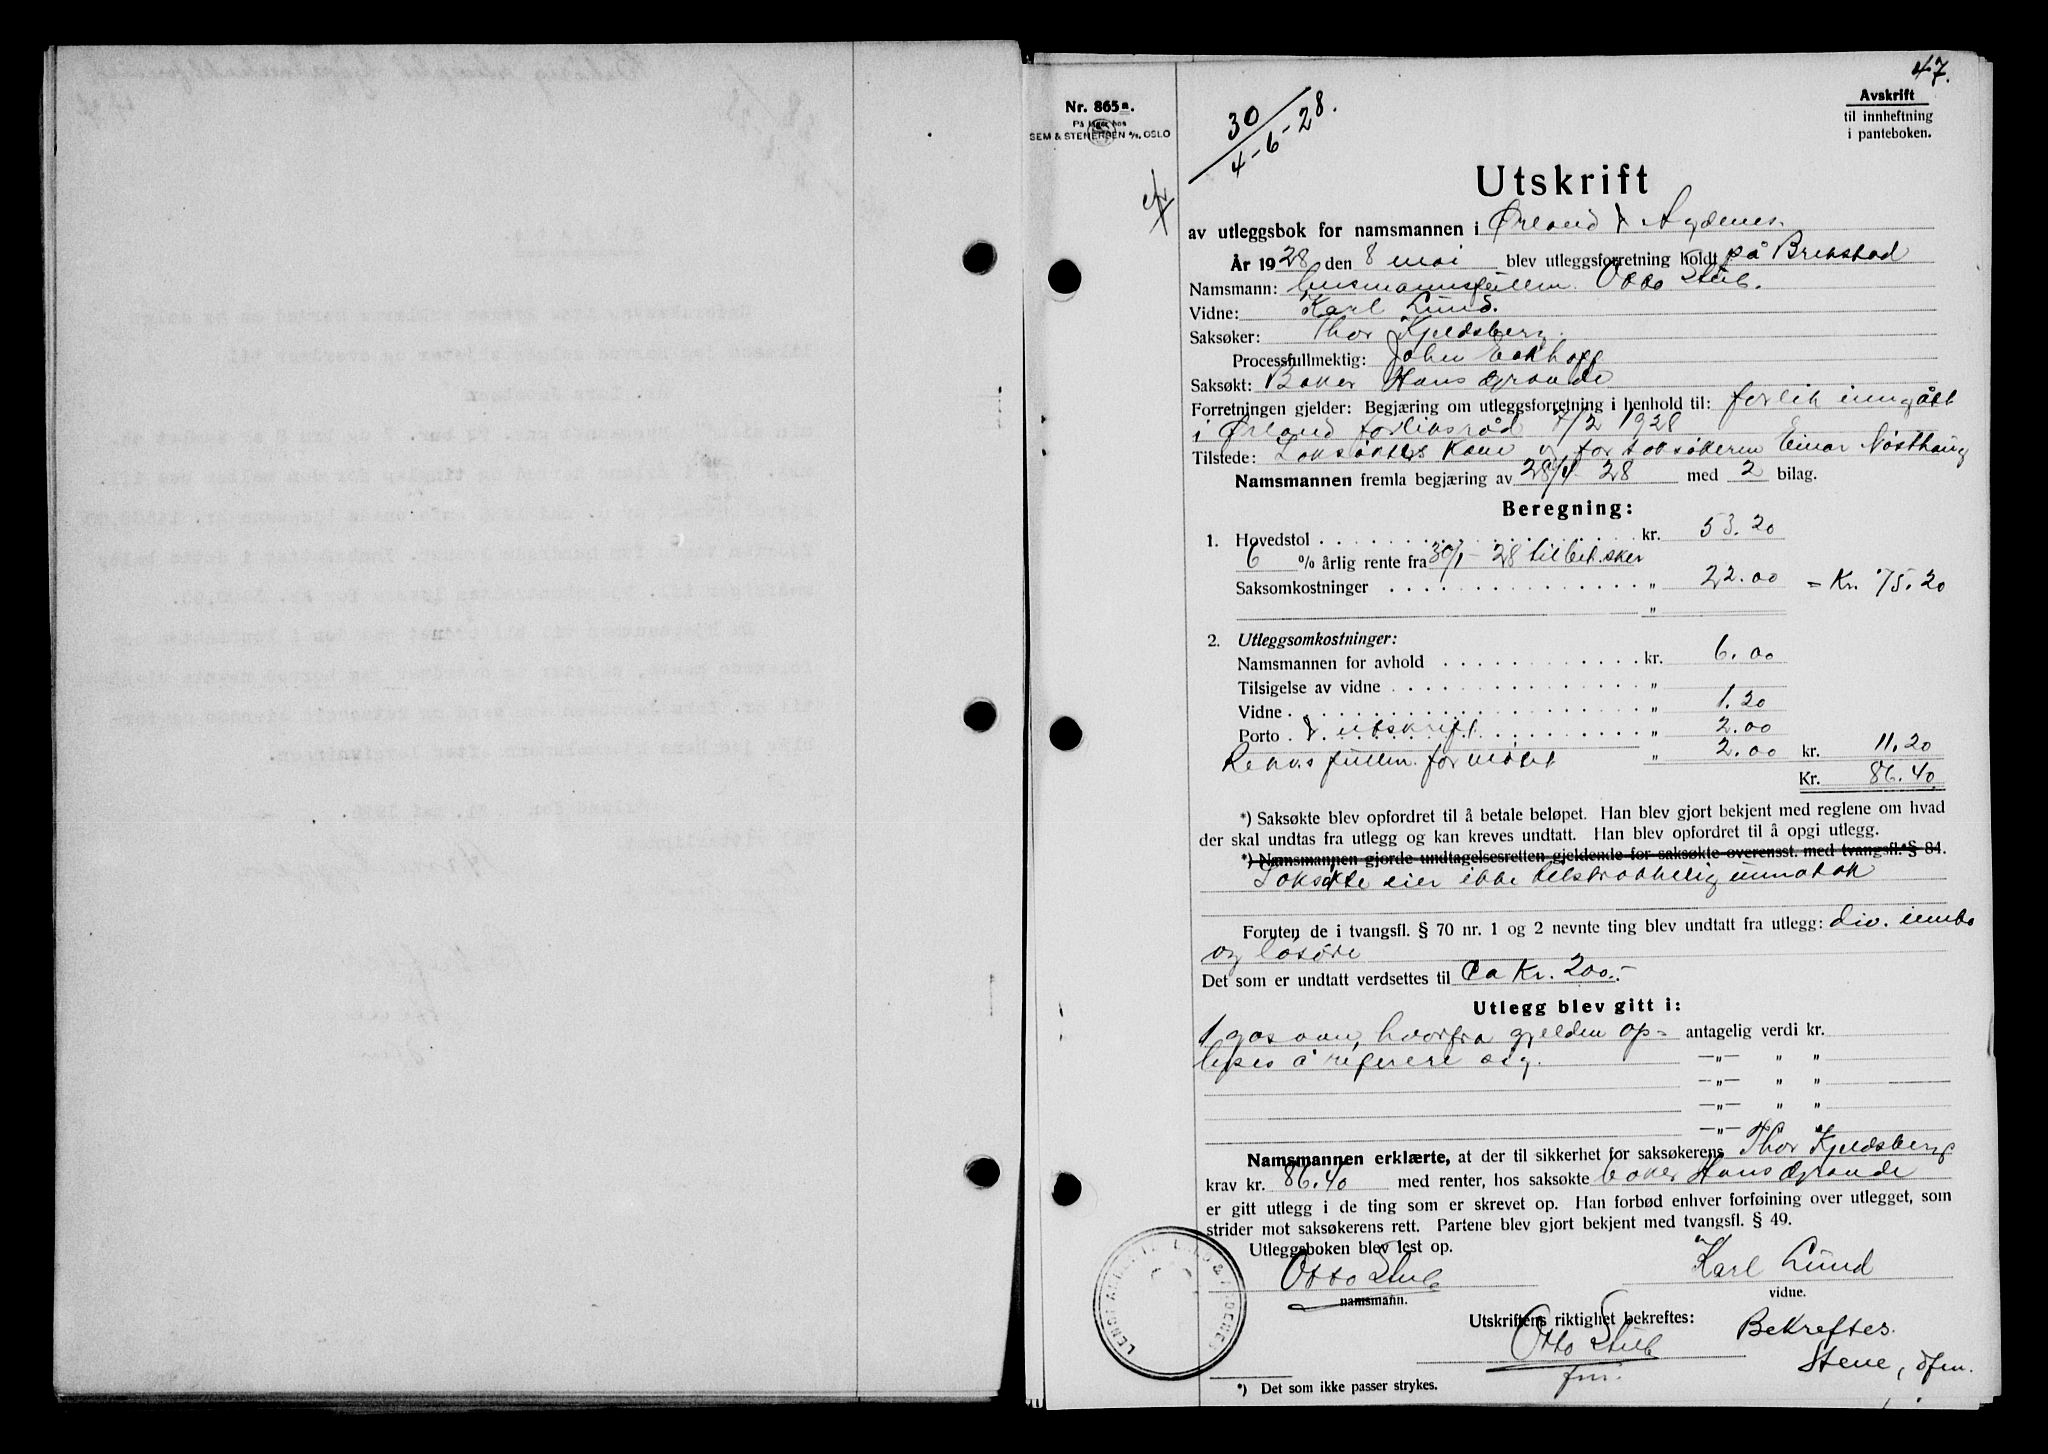 47.
Avskrift
til innheftning
i panteboken.
Nr. 865a.
På lager hos
SEM & STENERSEN A/S, OSLO
30
4-6-28.
Utskrift
av utleggsbok for namsmannen i Ørland & Agdenes.
År 1928 den 8 mai blev utleggsforretning holdt på Brekstad
Namsmann: lensmannsfullm. Otto Stub.
Vidne: Karl Lund.
Saksøker: Thor Kjeldsberg.
Processfullmektig: John Eckhoff
Saksøkt: Baker Hans Grande
Forretningen gjelder: Begjæring om utleggsforretning i henhold til: forlik inngått
i Ørland forliksråd 7/2 1928
Tilstede: Saksøktes kone og for saksøkeren Einar Nösthaug
Namsmannen fremla begjæring av 28/4 28 med 2 bilag.
Beregning:
1. Hovedstol kr. 53.20
6 % årlig rente fra 30/1-28 til bet. sker
Saksomkostninger " 22.00 = Kr. 75.20
"
2. Utleggsomkostninger:
Namsmannen for avhold kr. 6.00
Tilsigelse av vidne "
Vidne " 1.20
Porto & utskrift " 2.00
Rekvs fullm. for møtet " 2.00 kr. 11.20
Kr. 86.40
*) Saksøkte blev opfordret til å betale beløpet. Han blev gjort bekjent med reglene om hvad
der skal undtas fra utlegg og kan kreves undtatt. Han blev opfordret til å opgi utlegg.
*) Namsmannen gjorde undtagelsesretten gjeldende for saksøkte overensst. med tvangsfl. § 84.
Saksøkte eier ikke tilstrekkelig innbetalt
Foruten de i tvangsfl. § 70 nr. 1 og 2 nevnte ting blev undtatt fra utlegg: div. innbo
og løsøre
Det som er undtatt verdsettes til ca kr. 200.-
Utlegg blev gitt i:
1 gasovn, hvorfra gjelden op- antagelig verdi kr.
lyses å referere sig. —"— " "
—"— " "
—"— " "
—"— " "
Namsmannen erklærte, at der til sikkerhet for saksøkerens Thor Kjeldsberg
krav kr. 86.40 med renter, hos saksøkte baker Hans Grande
er gitt utlegg i de ting som er skrevet op. Han forbød enhver forføining over utlegget, som
strider mot saksøkerens rett. Partene blev gjort bekjent med tvangsfl. § 49.
Utleggsboken blev lest op.
Otto Stub
namsmann.
Karl Lund
vidne.
Utskriftens riktighet bekreftes:
Otto Stub
fm.
Bekreftes.
Stene, dfm.
*) Det som ikke passer strykes.